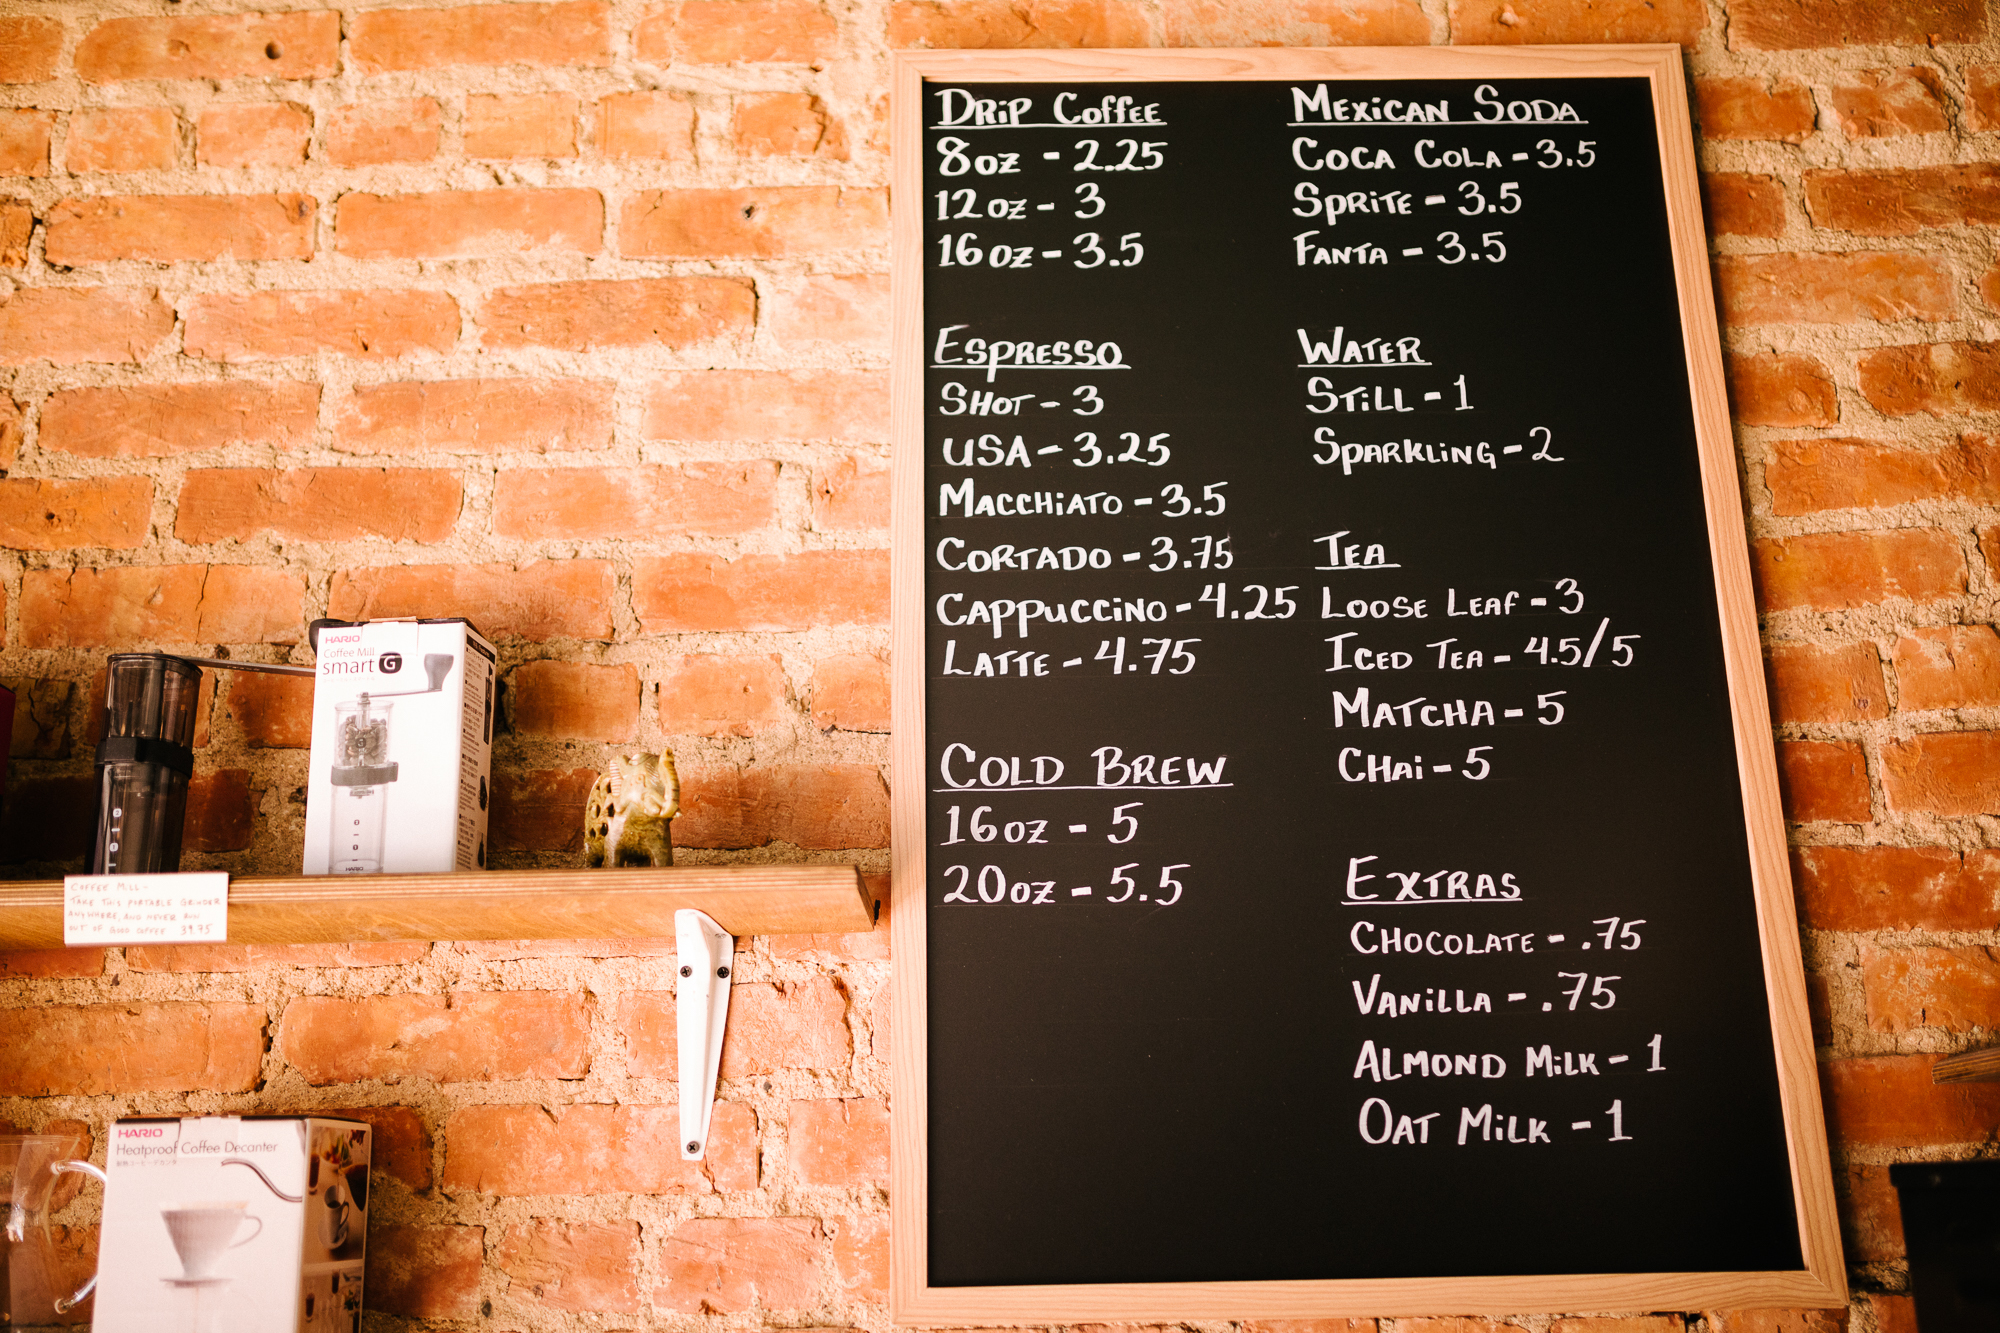 Drip Coffee
8oz - 2.25
12oz - 3
16oz - 3.5
Espresso
Shot - 3
USA - 3.25
Macchiato - 3.5
Cortado - 3.75
Cappuccino - 4.25
Latte - 4.75
Cold Brew
16oz - 5
20oz - 5.5
Mexican Soda
Coca Cola - 3.5
Sprite - 3.5
Fanta - 3.5
Water
Still - 1
Sparkling - 2
Tea
Loose Leaf - 3
Iced Tea - 4.5/5
Matcha - 5
Chai - 5
Extras
Chocolate - .75
Vanilla - .75
Almond Milk - 1
Oat Milk - 1
HARIO
Coffee Mill
smart G
HARIO
COFFEE MILL -
TAKE THIS PORTABLE GRINDER
ANYWHERE, AND NEVER RUN
OUT OF GOOD COFFEE 39.75
HARIO
Heatproof Coffee Decanter